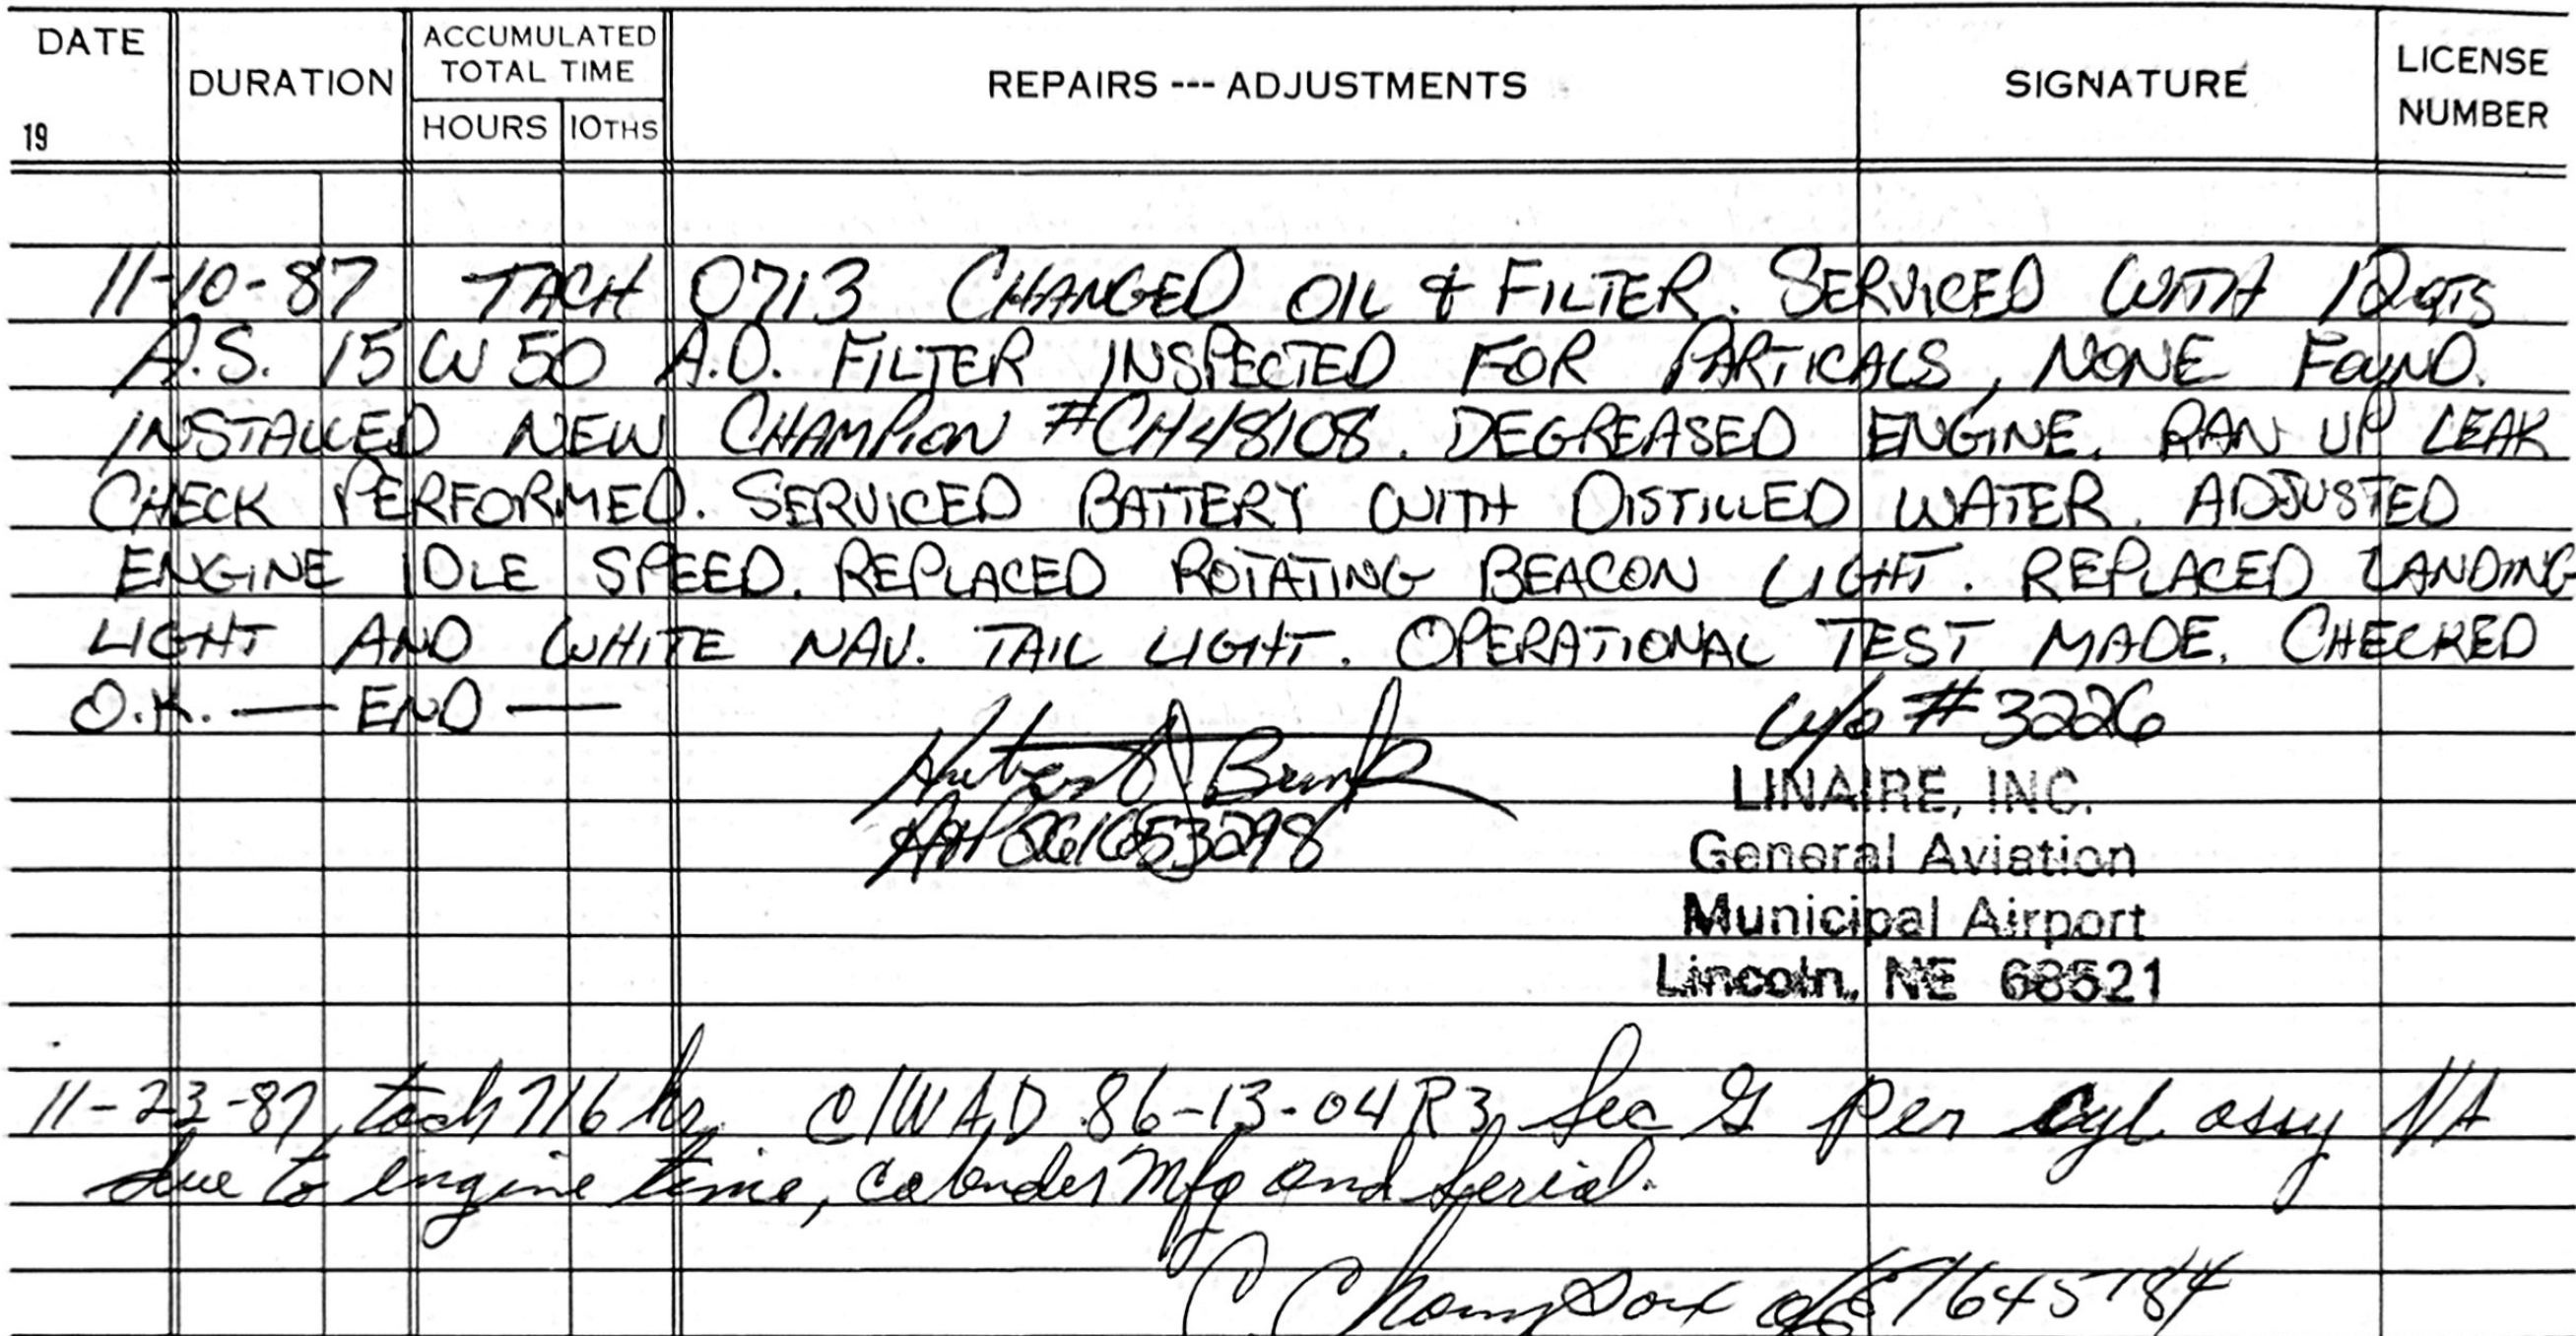 DATE
19
DURATION
ACCUMULATED
TOTAL TIME
HOURS
10THS
REPAIRS --- ADJUSTMENTS
SIGNATURE
LICENSE
NUMBER
11-10-87 TACH 0713 CHANGED OIL & FILTER. SERVICED WITH 12 QTS
A.S. 15 W 50 A.D. FILTER INSPECTED FOR PARTICALS, NONE FOUND.
INSTALLED NEW CHAMPION #CH48108. DEGREASED ENGINE. RAN UP LEAK
CHECK PERFORMED. SERVICED BATTERY WITH DISTILLED WATER. ADJUSTED
ENGINE IDLE SPEED. REPLACED ROTATING BEACON LIGHT. REPLACED LANDING
LIGHT AND WHITE NAV. TAIL LIGHT. OPERATIONAL TEST MADE. CHECKED
O.K. — END —
W/O #3226
A&P
LINAIRE, INC.
General Aviation
Municipal Airport
Lincoln, NE 68521
11-23-87, tach 716 hr. C/W A.D 86-13-04 R3, Sec G per cyl assy N/A
due to engine time, calender Mfg and Serial.